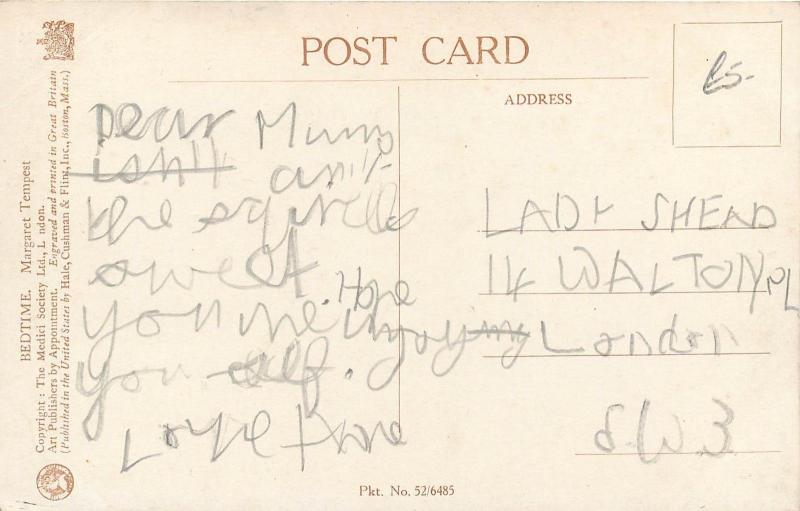 POST CARD
£5-
ADDRESS
BEDTIME. Margaret Tempest
Copyright : The Medici Society Ltd., L ndon.
Art Publishers by Appointment. Engraved and printed in Great Britain
(Published in the United States by Hale, Cushman & Flint, Inc., Boston, Mass.)
Dear Mum
isn't arn't
the sqirells
sweet. Hope
you
your self.
Love from
LADY SHEAD
14 WALTON PL
London
SW3
Pkt. No. 52/6485